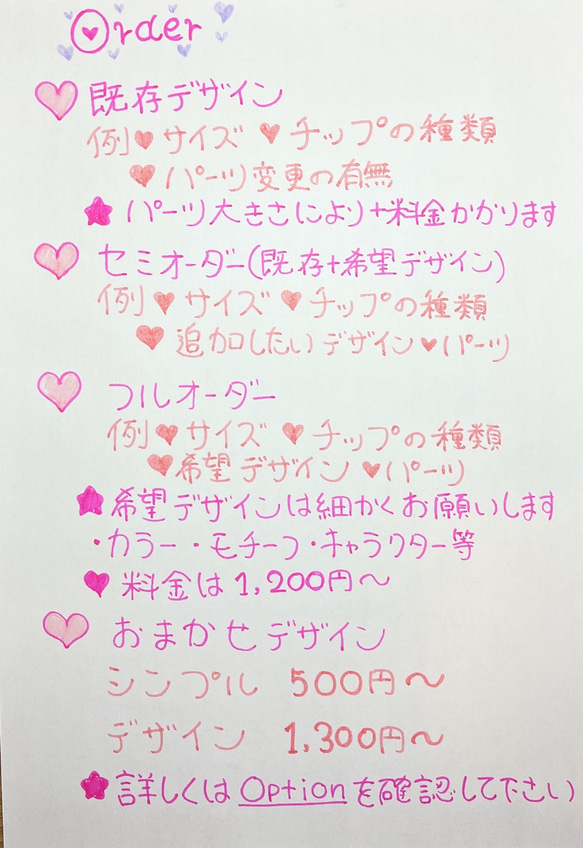 Order
既存デザイン
例♥サイズ ♥チップの種類
♥パーツ変更の有無
★パーツ大きさにより+料金かかります
セミオーダー(既存+希望デザイン)
例♥サイズ ♥チップの種類
♥追加したいデザイン♥パーツ
フルオーダー
例♥サイズ ♥チップの種類
♥希望デザイン ♥パーツ
★希望デザインは細かくお願いします
・カラー・モチーフ・キャラクター等
♥料金は1,200円〜
おまかせデザイン
シンプル 500円〜
デザイン 1,300円〜
★詳しくはOptionを確認して下さい